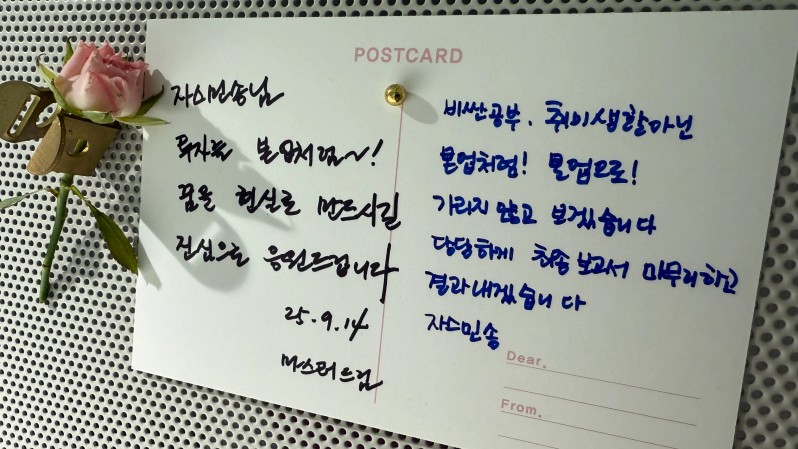 POSTCARD
자스민송님
투자를 본업처럼~!
꿈을 현실로 만드시길
진심으로 응원드립니다
25.9.14
마스터드림
비싼공부. 취미생활아닌
본업처럼! 본업으로!
가리지 않고 보겠습니다
당당하게 최종보고서 마무리하고
결과내겠습니다
자스민송
Dear.
From.